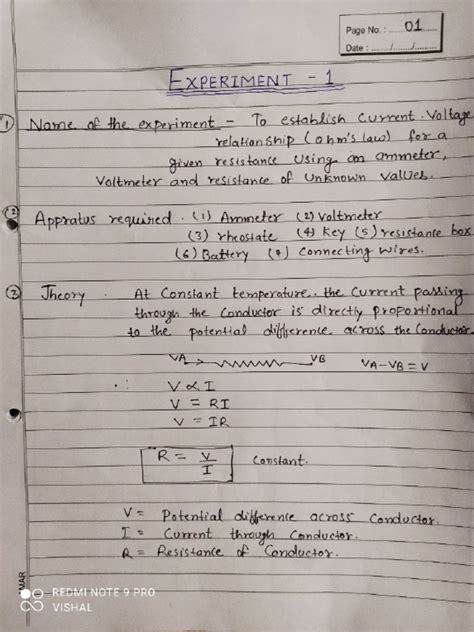 Page No.: 01
Date: ....../....../......
EXPERIMENT - 1
1 Name of the experiment - To establish Current-Voltage
relationship (ohm's law) for a
given resistance using an ammeter,
Voltmeter and resistance of unknown values.
2 Appratus required. (1) Ammeter (2) voltmeter
(3) rheostate (4) Key (5) resistance box
(6) Battery (7) Connecting wires.
Theory. At Constant temperature. the Current passing
through the Conductor is directly proportional
to the potential difference across the Conductor.
VA VB VA-VB = V
∴ V ∝ I
V = RI
V = IR
R = V/I Constant.
V = Potential difference across Conductor.
I = Current through Conductor.
R = Resistance of Conductor.
REDMI NOTE 9 PRO
VISHAL